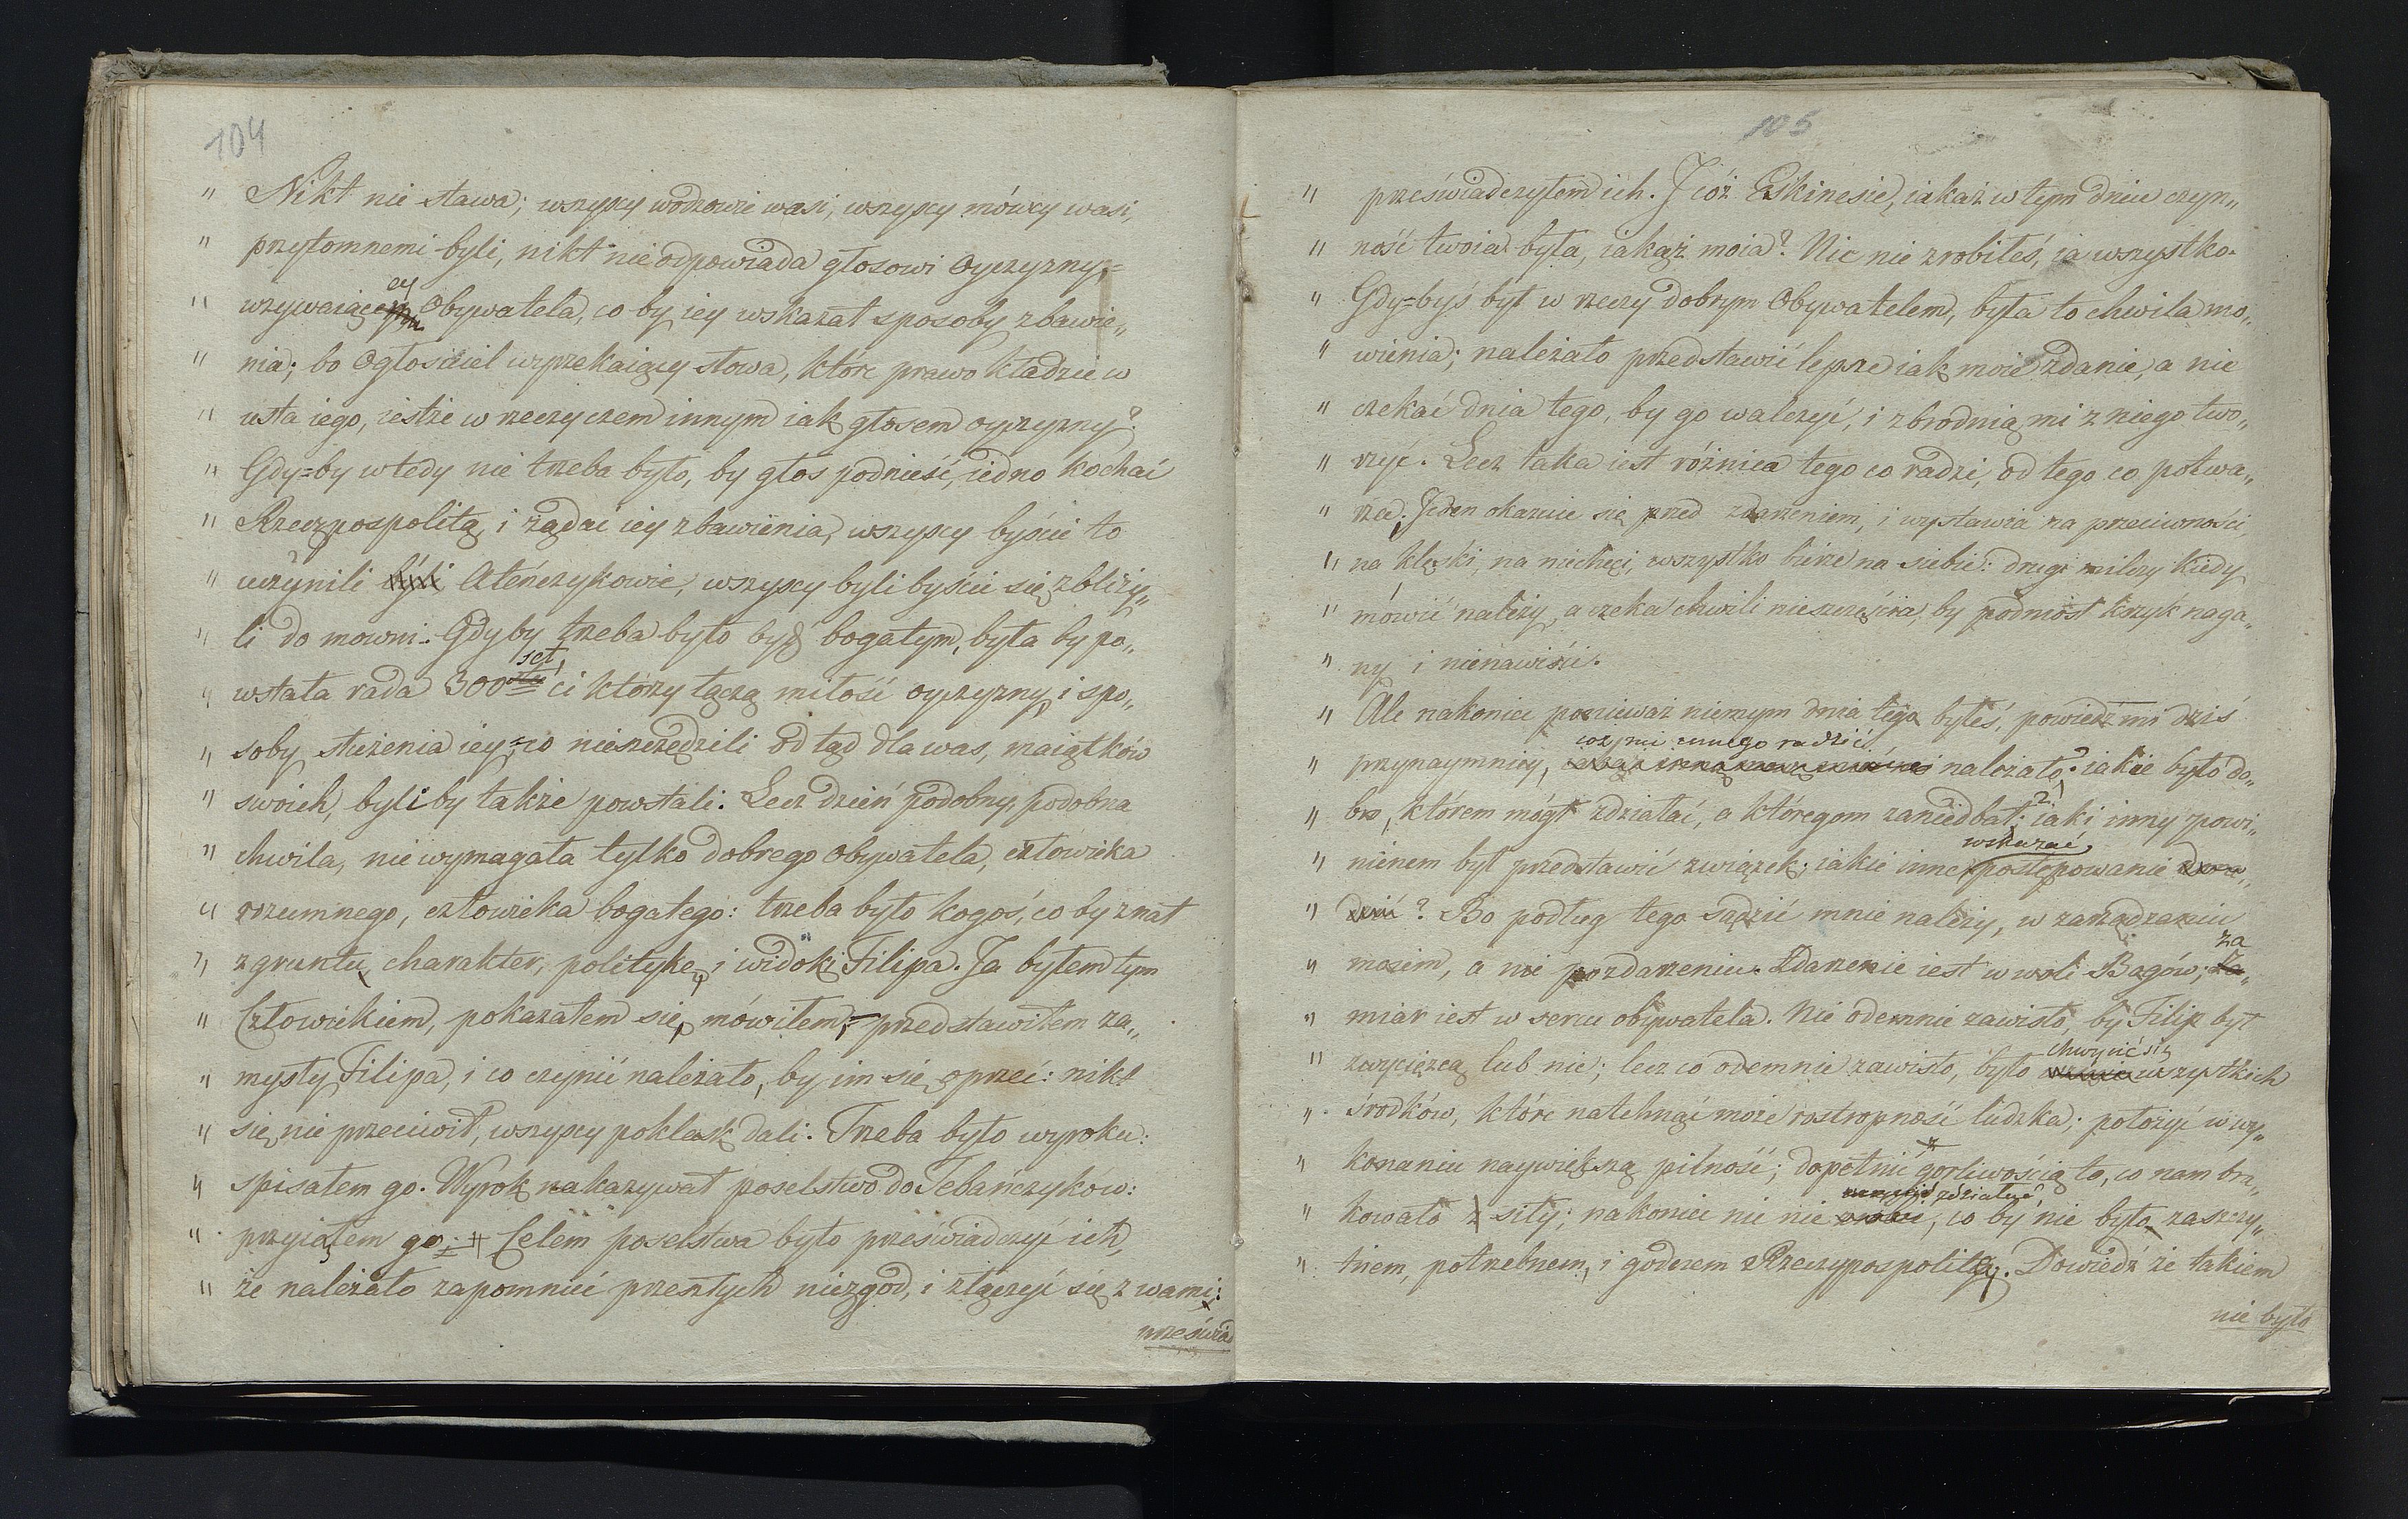 104
" Nikt nie stawa; wszyscy wodzowie wasi, wszyscy mówcy wasi,
" przytomnemi byli, nikt nie odpowiada głosowi Oyczyzny,=
ey
" wzywaiący Obywatela, co by iey wskazał sposoby zbawie„
" nia; bo Ogłosiciel wyrzekaiący słowa, które prawo kładzie w
" usta iego, iestże w rzeczy czem innym iak głosem oyczyzny?
" Gdy=by wtedy nie trzeba było, by głos podnieść, iedno kochać
" Rzeczpospolitą, i żądać iey zbawienia, wszyscy byście to
" uczynili byli Ateńczykowie, wszyscy byli byście się zbliży„
" li do mowni. Gdyby trzeba było być bogatym, była by po„
set,
" wstała rada 300 ci którzy łączą miłość oyczyzny, i spo„
" soby służenia iey, co nieszczędzili odtąd dla was, maiątków
" swoich, byliby także powstali. Lecz dzień podobny, podobna
" chwila, nie wymagała tylko dobrego Obywatela, człowieka
" rozumnego, człowieka bogatego: trzeba było kogoś, co by znał
" z gruntu, charakter, politykę, i widoki Filipa. Ja byłem tym
" Człowiekiem, pokazałem się, mówiłem; przedstawiłem za„
" mysły Filipa, i co czynić należało, by im się oprzeć: nikt
" się nie przeciwił, wszyscy poklask dali. Trzeba było wyroku:
" spisałem go. Wyrok nakazywał poselstwo do Tebańczyków:
" przyiąłem go: Celem poselstwa było przeświadczyć ich,
" że należało zapomnieć przeszłych niezgod, i złączyć się z wami:
przeświad
105
" przeświadczyłem ich. I cóż Eskinesie, iakaż w tym dniu czyn„
" ność twoia była, iakąż moia? Nic nie zrobiłeś, ia wszystko.
" Gdy=byś był w rzeczy dobrym Obywatelem, była to chwila mó„
" wienia; należało przedstawić lepsze iak moie zdanie, a nie
" czekać dnia tego, by go walczyć, i zbrodnią mi z niego two„
" rzyć. Lecz taka iest różnica tego co radzi, od tego co potwa„
" rza: Jeden okazuie się przed zdarzeniem, i wystawia na przeciwności
" na klęski, na niechęci, wszystko bierze na siebie: drugi milczy kiedy
" mówić należy, a czeka chwili nieszczęścia, by podniósł krzyk naga„
" ny i nienawiści.
" Ale nakoniec ponieważ niemym dnia tego byłeś, powiedź mi dziś
coż mi innego radzić
" przynaymniey, należało? iakie było do„
" bro, którem mógł zdziałać, a któregom zaniedbał? iaki inny powi„
wskazać,
" nienem był przedstawić związek; iakie inne postępowanie
" dzić? Bo podług tego sądzić mnie należy, w zarządzaniu
za
" moiem, a nie po zdarzeniu. Zdarzenie iest w woli Bogów; Za„
" miar iest w sercu obywatela. Nie odemnie zawisło, by Filip był
chwycić się
" zwycięzcą lub nie; lecz co odemnie zawisło, było wszystkich
" środków, które natchnąć może rostropność ludzka; położyć w wy„
" konaniu naywiększą pilność; dopełnić gorliwością to, co nam bra„
zdziałać,
" kowało z siły; nakoniec nic nie zrobić, co by nie było zaszczy„
" tnem, potrzebnem, i godnem Rzeczypospolitey. Dowiedź że takiem
nie było